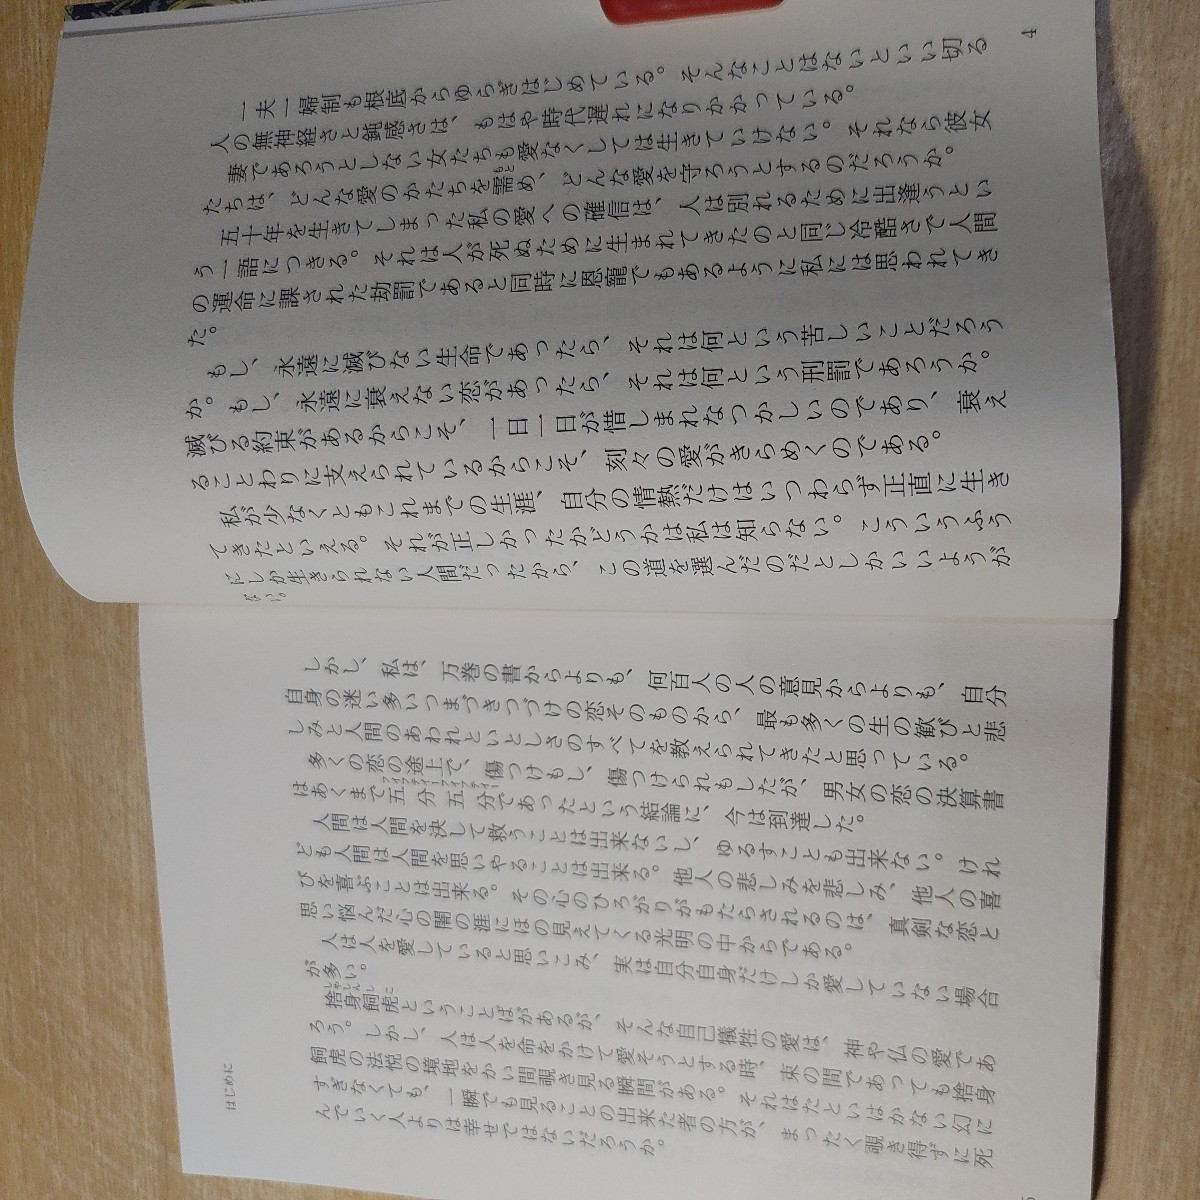 4
一夫一婦制も根底からゆらぎはじめている。そんなことはないといい切る
人の無神経さと鈍感さは、もはや時代遅れになりかかっている。
妻であろうとしない女たちも愛なくしては生きていけない。それなら彼女
たちは、どんな愛のかたちを需め、どんな愛を守ろうとするのだろうか。
五十年を生きてしまった私の愛への確信は、人は別れるために出逢うとい
う一語につきる。それは人が死ぬために生まれてきたのと同じ冷酷さで人間
の運命に課された劫罰であると同時に恩寵でもあるように私には思われてき
た。
もし、永遠に滅びない生命であったら、それは何という苦しいことだろう
か。もし、永遠に衰えない恋があったら、それは何という刑罰であろうか。
滅びる約束があるからこそ、一日一日が惜しまれなつかしいのであり、衰え
ることわりに支えられているからこそ、刻々の愛がきらめくのである。
私が少なくともこれまでの生涯、自分の情熱だけはいつわらず正直に生き
てきたといえる。それが正しかったかどうかは私は知らない。こういうふう
にしか生きられない人間だったから、この道を選んだのだとしかいいようが
ない。
しかし、私は、万巻の書からよりも、何百人の人の意見からよりも、自分
自身の迷い多いつまづきつづけの恋そのものから、最も多くの生の歓びと悲
しみと人間のあわれといとしさのすべてを教えられてきたと思っている。
多くの恋の途上で、傷つけもし、傷つけられもしたが、男女の恋の決算書
はあくまで五分五分であったという結論に、今は到達した。
人間は人間を決して救うことは出来ないし、ゆるすことも出来ない。けれ
ども人間は人間を思いやることは出来る。他人の悲しみを悲しみ、他人の喜
びを喜ぶことは出来る。その心のひろがりがもたらされるのは、真剣な恋と
思い悩んだ心の闇の涯にほの見えてくる光明の中からである。
人は人を愛していると思いこみ、実は自分自身だけしか愛していない場合
が多い。
捨身飼虎ということばがあるが、そんな自己犠牲の愛は、神や仏の愛であ
ろう。しかし、人は人を命をかけて愛そうとする時、束の間であっても捨身
飼虎の法悦の境地をかい間覗き見る瞬間がある。それはたといはかない幻に
すぎなくても、一瞬でも見ることの出来た者の方が、まったく覗き得ずに死
んでいく人よりは幸せではないだろうか。
はじめに
5